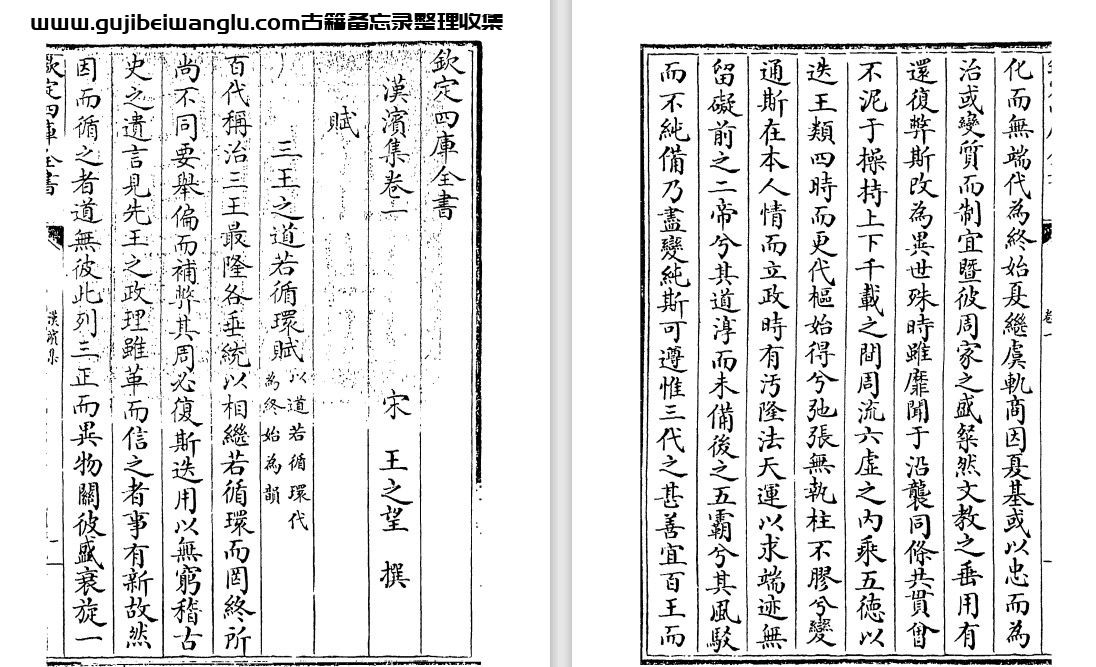 www.gujibeiwanglu.com古籍备忘录整理收集
欽定四庫全書
漢濱集卷一
宋 王之望 撰
賦
三王之道若循環賦
以道若循環代
為終始為韻
百代稱治三王最隆各垂統以相繼若循環而罔終所
尚不同要舉偏而補弊其周必復斯迭用以無窮稽古
史之遺言見先王之政理雖革而信之者事有新故然
因而循之者道無彼此列三正而異物關彼盛衰旋一
欽定四庫全書
漢濱集
一
卷一
化而無端代為終始夏繼虞軌商因夏基或以忠而為
治或變質而制宜暨彼周家之盛粲然文教之垂用有
還復弊斯改為異世殊時雖靡聞于沿襲同條共貫曾
不泥于操持上下千載之間周流六虛之內乘五德以
迭王類四時而更代樞始得兮弛張無執柱不膠兮變
通斯在本人情而立政時有汚隆法天運以求端迹無
留礙前之二帝兮其道淳而未備後之五霸兮其風駁
而不純備乃盡變純斯可遵惟三代之甚善宜百王而